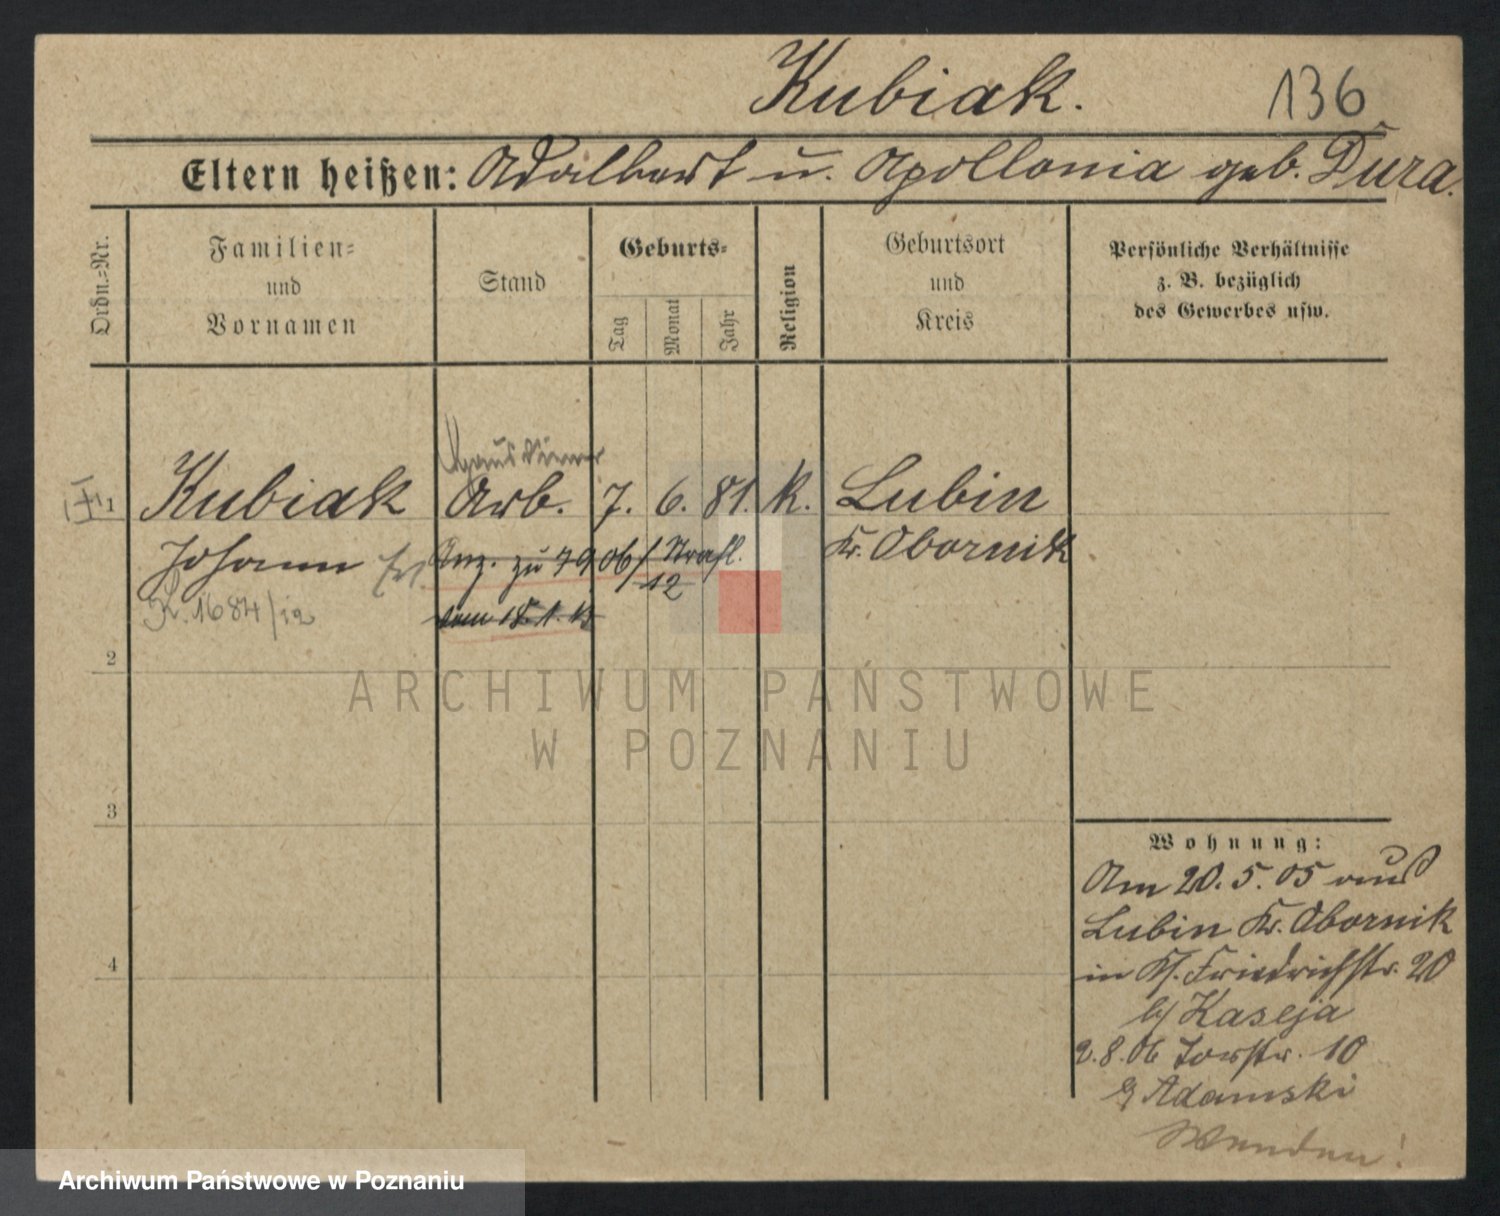 Kubiak.
136
Eltern heißen: Adalbert u. Apollonia geb. Dura.
Ordn.=Nr.
Familien=
und
Vornamen
Stand
Geburts=
Tag
Monat
Jahr
Religion
Geburtsort
und
Kreis
Persönliche Verhältnisse
z. B. bezüglich
des Gewerbes usw.
Hausdiener
1 Kubiak Arb. 7. 6. 81. k. Lubin
Kr. Obornik
Johann Anz. zu 7906/12 Strafl.
K. 1684/12
vom 18. 1. 13
2
3
4
ARCHIWUM PAŃSTWOWE
W POZNANIU
Wohnung:
Am 20. 5. 05 aus
Lubin Kr. Obornik
in Friedrichstr. 20
b/ Kaseja
2. 8. 06 Torstr. 10
b/ Adamski
Wenden!
Archiwum Państwowe w Poznaniu